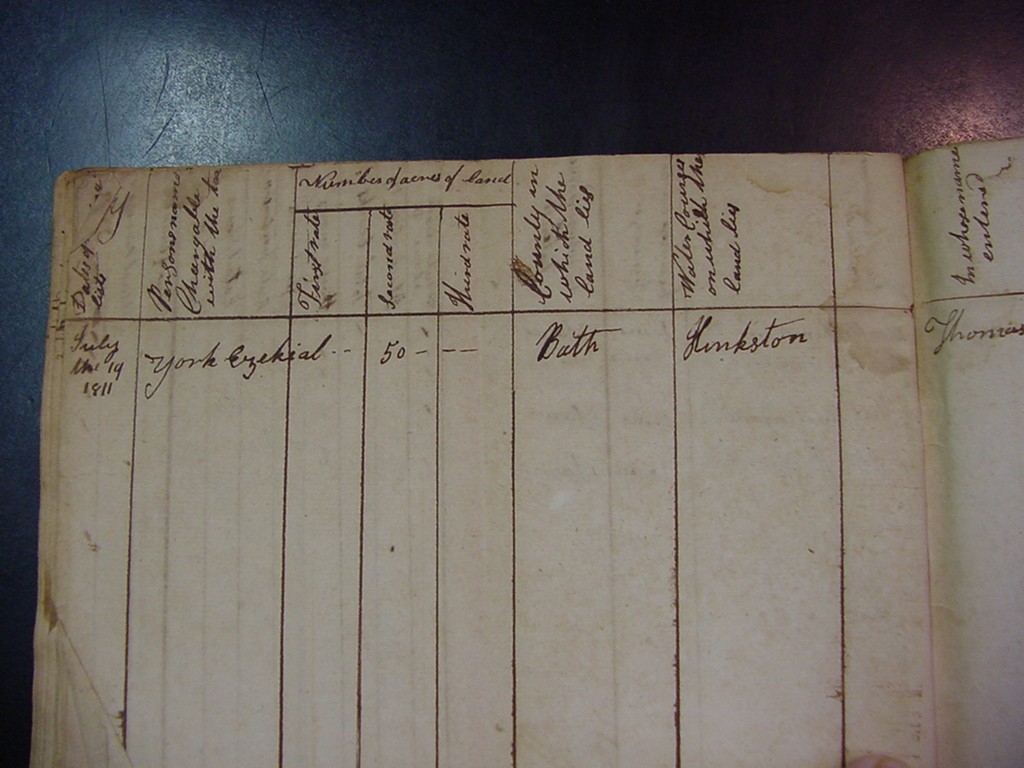 Date of
list
Persons names
Chargable
with the tax
Number of acres of land
First rate
Second rate
Third rate
County in
which the
land lies
Water Courses
on which the
land lies
In whose name
entered
July
the 19
1811
York Ezekial -- 50 - -- Bath Hinkston Thomas